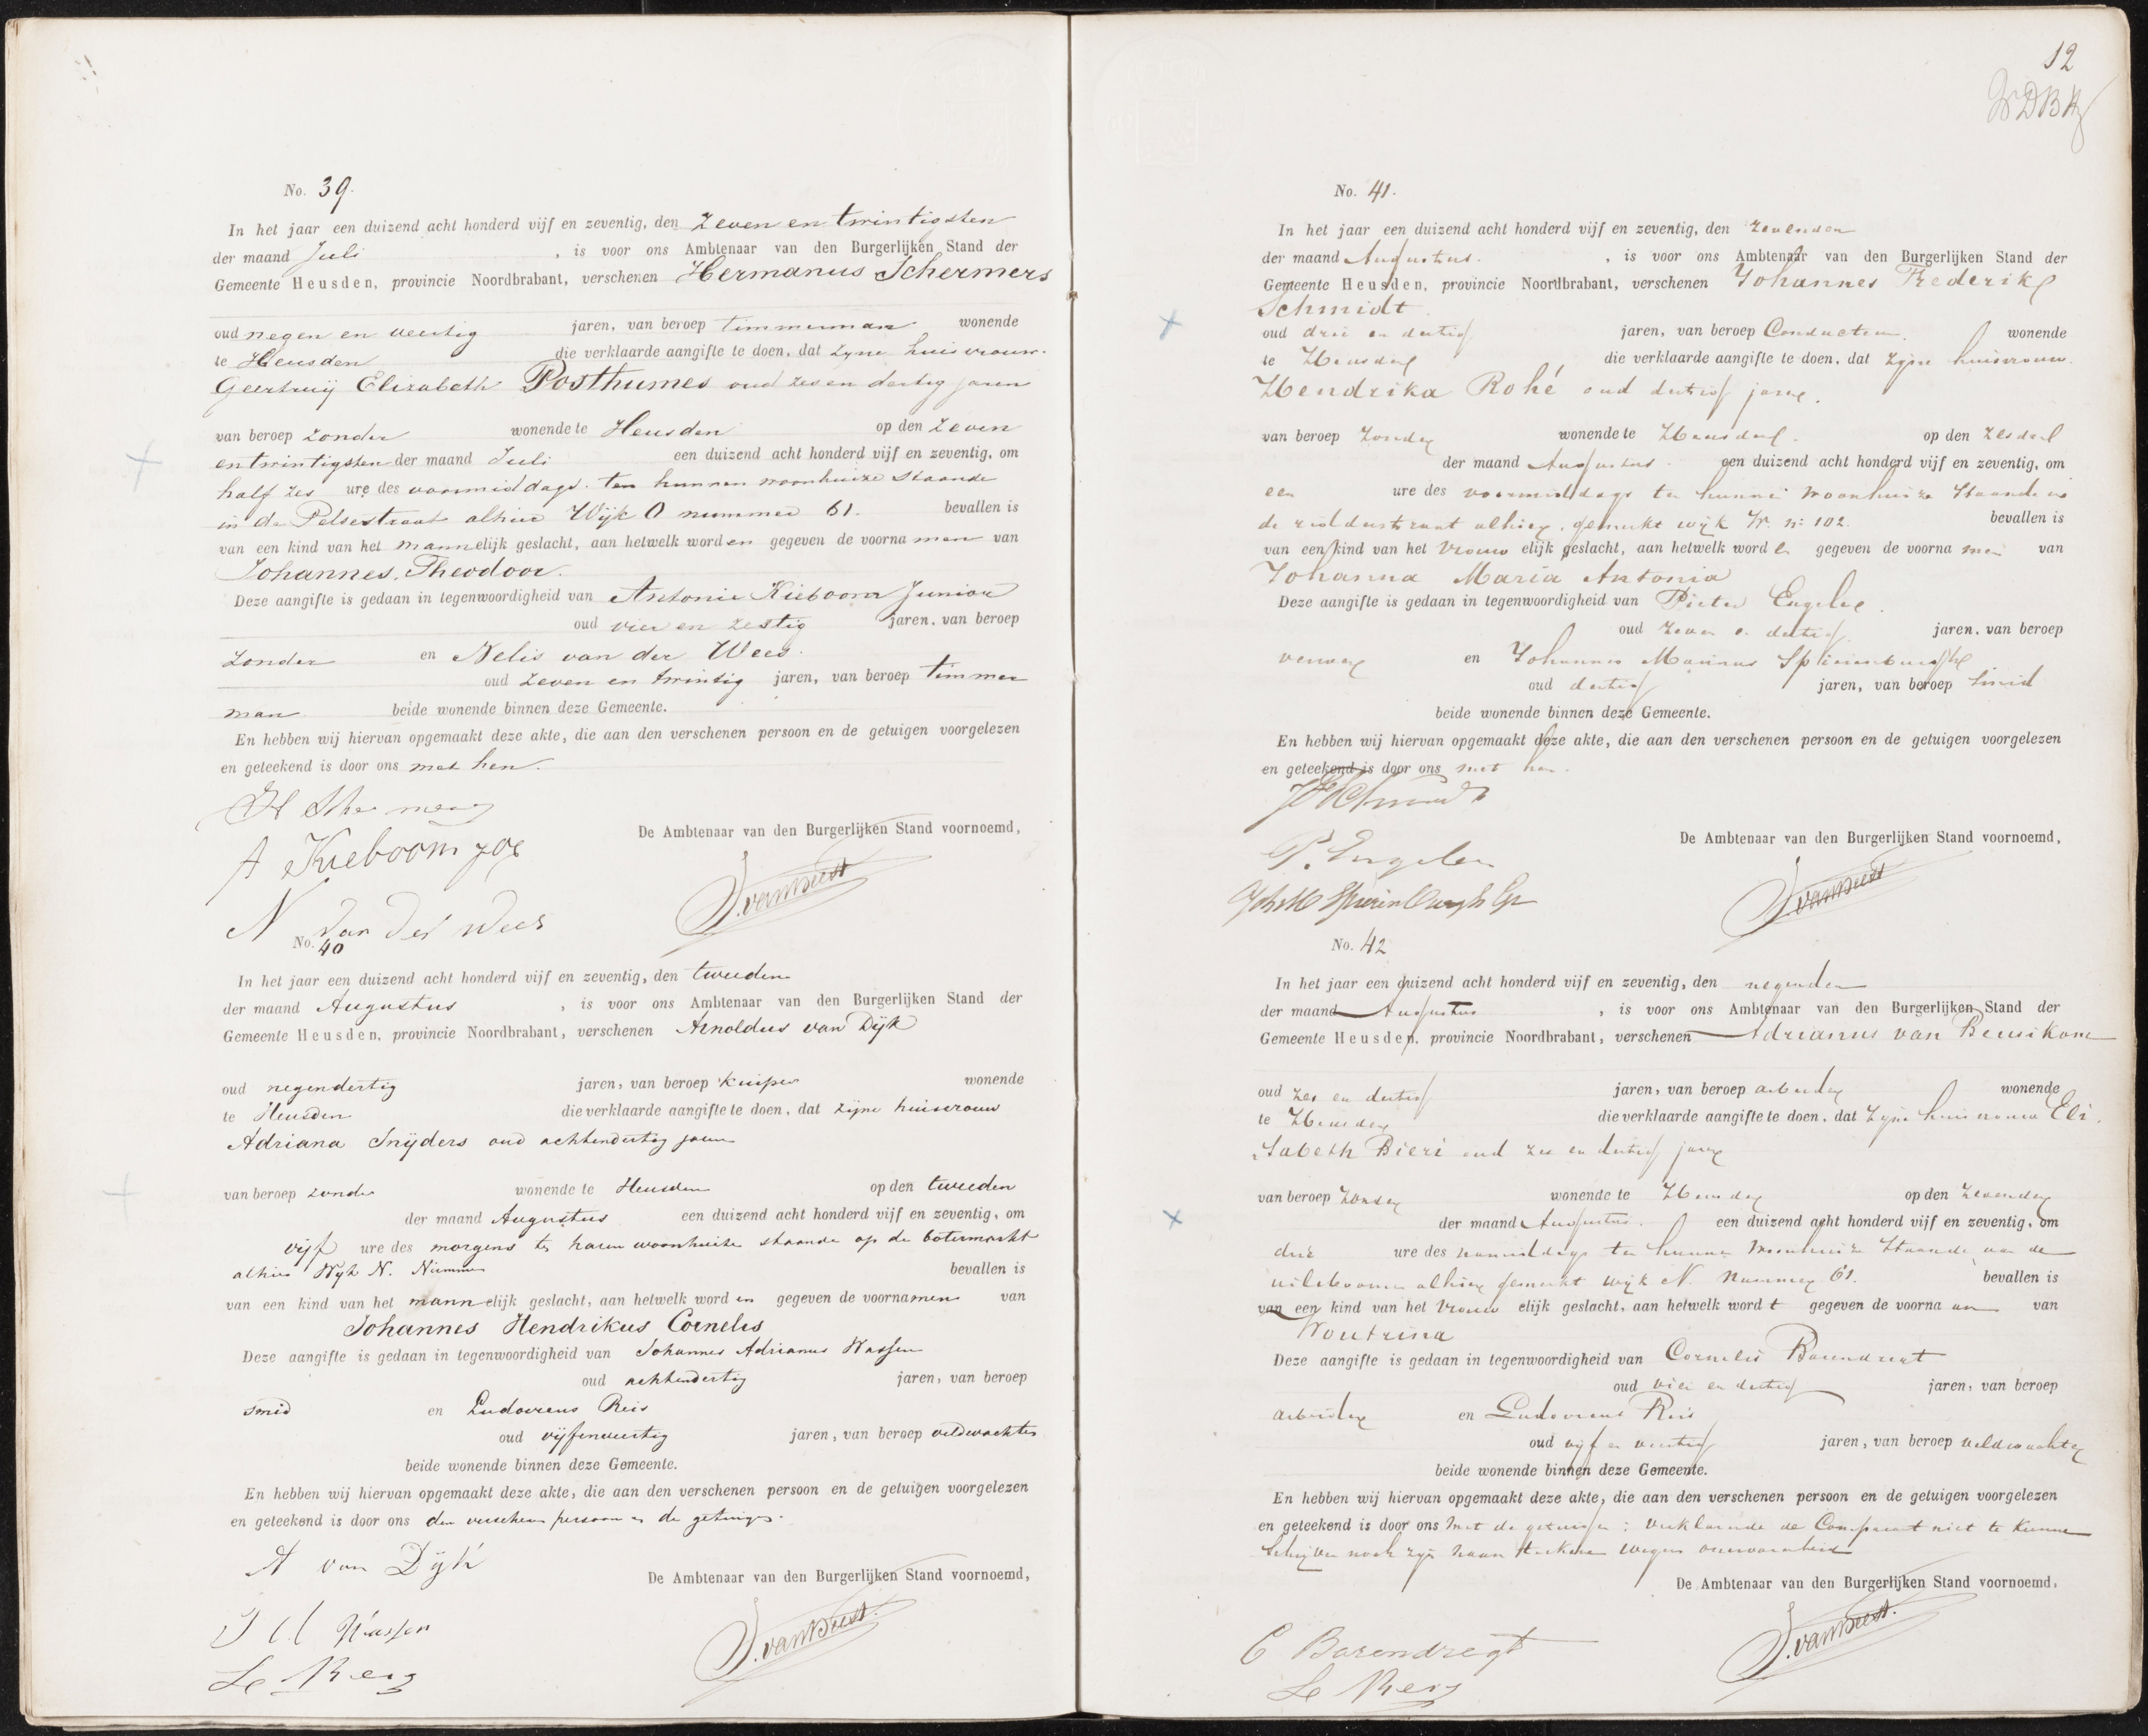 No. 39.
In het jaar een duizend acht honderd vijf en zeventig, den zeven en twintigsten
der maand Juli , is voor ons Ambtenaar van den Burgerlijken Stand der
Gemeente Heusden, provincie Noordbrabant, verschenen Hermanus Schermers
oud negen en veertig jaren, van beroep timmerman wonende
te Heusden die verklaarde aangifte te doen, dat zyne huisvrouw
Geertruij Elizabeth Posthumes oud zes en dertig jaren
van beroep zonder wonende te Heusden op den zeven
en twintigsten der maand Juli een duizend acht honderd vijf en zeventig, om
half zes ure des voormiddags ten hunnen woonhuize staande
in de Pelsestraat alhier Wijk O nummer 61. bevallen is
van een kind van het mannelijk geslacht, aan hetwelk worden gegeven de voornamen van
Johannes, Theodoor.
Deze aangifte is gedaan in tegenwoordigheid van Antonie Kieboom Junior
oud vier en zestig jaren, van beroep
zonder en Nelis van der Wees.
oud zeven en twintig jaren, van beroep timmer
man beide wonende binnen deze Gemeente.
En hebben wij hiervan opgemaakt deze akte, die aan den verschenen persoon en de getuigen voorgelezen
en geteekend is door ons met hen.
H Schermers
De Ambtenaar van den Burgerlijken Stand voornoemd,
A Kieboom
J. van Beest
N van der Wees
No. 40
In het jaar een duizend acht honderd vijf en zeventig, den tweeden
der maand Augustus , is voor ons Ambtenaar van den Burgerlijken Stand der
Gemeente Heusden, provincie Noordbrabant, verschenen Arnoldus van Dijk
oud negendertig jaren, van beroep kuiper wonende
te Heusden die verklaarde aangifte te doen, dat zijne huisvrouw
Adriana Snijders oud achtendertig jaren
van beroep zonder wonende te Heusden op den tweeden
der maand Augustus een duizend acht honderd vijf en zeventig, om
vijf ure des morgens te haren woonhuize staande op de botermarkt
alhier Wijk N. Nummer bevallen is
van een kind van het mannelijk geslacht, aan hetwelk worden gegeven de voornamen van
Johannes Hendrikus Cornelis
Deze aangifte is gedaan in tegenwoordigheid van Johannes Adrianus Wassen
oud achtendertig jaren, van beroep
smid en Ludovicus Reis
oud vijfenveertig jaren, van beroep veldwachter
beide wonende binnen deze Gemeente.
En hebben wij hiervan opgemaakt deze akte, die aan den verschenen persoon en de getuigen voorgelezen
en geteekend is door ons den verschenen persoon en de getuigen.
A van Dijk
De Ambtenaar van den Burgerlijken Stand voornoemd,
J A Wassen
J. van Beest.
L Reis
12
No. 41.
In het jaar een duizend acht honderd vijf en zeventig, den zevenden
der maand Augustus. , is voor ons Ambtenaar van den Burgerlijken Stand der
Gemeente Heusden, provincie Noordbrabant, verschenen Johannes Frederik
Schmidt
oud drie en dertig jaren, van beroep Conducteur wonende
te Heusden die verklaarde aangifte te doen, dat zijne huisvrouw
Hendrika Rohé oud dertig jaren.
van beroep zonder wonende te Heusden. op den zesden
der maand Augustus. een duizend acht honderd vijf en zeventig, om
een ure des voormiddags ten hunnen woonhuize staande in
de ridderstraat alhier, gemerkt wijk W. n: 102. bevallen is
van een kind van het vrouwelijk geslacht, aan hetwelk worden gegeven de voornamen van
Johanna Maria Antonia
Deze aangifte is gedaan in tegenwoordigheid van Pieter Engelen.
oud zeven en dertig jaren, van beroep
verwer en Johannes Marinus Spierenburgh
oud dertig jaren, van beroep smid
beide wonende binnen deze Gemeente.
En hebben wij hiervan opgemaakt deze akte, die aan den verschenen persoon en de getuigen voorgelezen
en geteekend is door ons met hen.
JF Schmidt
De Ambtenaar van den Burgerlijken Stand voornoemd,
P. Engelen
J. van Beest
Joh M Spierenburgh
No. 42
In het jaar een duizend acht honderd vijf en zeventig, den negenden
der maand Augustus , is voor ons Ambtenaar van den Burgerlijken Stand der
Gemeente Heusden, provincie Noordbrabant, verschenen Adrianus van Beusikom
oud zes en dertig jaren, van beroep arbeider wonende
te Heusden die verklaarde aangifte te doen, dat zijne huisvrouw Eli
sabeth Bieri oud zes en dertig jaren
van beroep zonder wonende te Heusden op den zevenden
der maand Augustus. een duizend acht honderd vijf en zeventig, om
drie ure des namiddags ten hunnen woonhuize staande aan de
alhier gemerkt wijk N. nummer 61. bevallen is
van een kind van het vrouwelijk geslacht, aan hetwelk wordt gegeven de voornaam van
Woutrina
Deze aangifte is gedaan in tegenwoordigheid van Cornelis Barendregt
oud vier en dertig jaren, van beroep
arbeider en Ludovicus Reis
oud vijf en veertig jaren, van beroep veldwachter
beide wonende binnen deze Gemeente.
En hebben wij hiervan opgemaakt deze akte, die aan den verschenen persoon en de getuigen voorgelezen
en geteekend is door ons met de getuigen; verklarende de Comparant niet te kunnen
schrijven noch zijn naam teekenen wegens onervarenheid
De Ambtenaar van den Burgerlijken Stand voornoemd,
C Barendregt
J. van Beest.
L Reis